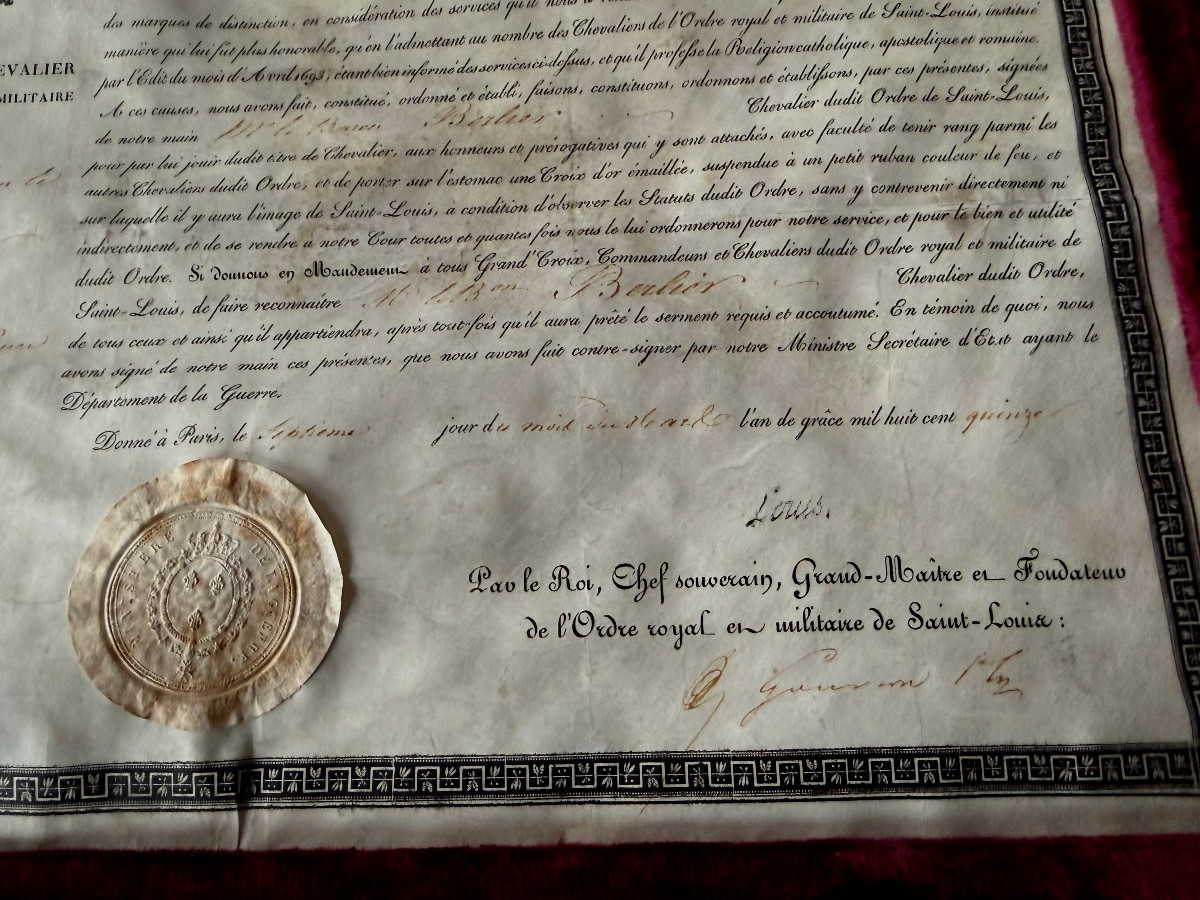 des marques de distinction, en considération des services qu'il nous a
manière qui lui fut plus honorable, qu'en l'admettant au nombre des Chevaliers de l'Ordre royal et militaire de Saint-Louis, institué
par l'Edit du mois d'Avril 1693; étant bien informé des services ci-dessus, et qu'il professe la Religion catholique, apostolique et romaine.
EVALIER
MILITAIRE
A ces causes, nous avons fait, constitué, ordonné et établi, faisons, constituons, ordonnons et établissons, par ces présentes, signées
de notre main Mr le Baron Berlier Chevalier dudit Ordre de Saint-Louis,
pour par lui jouir dudit titre de Chevalier, aux honneurs et prérogatives qui y sont attachés, avec faculté de tenir rang parmi les
autres Chevaliers dudit Ordre, et de porter sur l'estomac une Croix d'or émaillée, suspendue à un petit ruban couleur de feu, et
sur laquelle il y aura l'image de Saint-Louis, à condition d'observer les Statuts dudit Ordre, sans y contrevenir directement ni
indirectement, et de se rendre à notre Cour toutes et quantes fois nous le lui ordonnerons pour notre service, et pour le bien et utilité
dudit Ordre. Si donnons en Mandement à tous Grand'Croix, Commandeurs et Chevaliers dudit Ordre royal et militaire de
Saint-Louis, de faire reconnaître Mr le Bon Berlier Chevalier dudit Ordre,
de tous ceux et ainsi qu'il appartiendra, après tout-fois qu'il aura prêté le serment requis et accoutumé. En témoin de quoi, nous
avons signé de notre main ces présentes, que nous avons fait contre-signer par notre Ministre Secrétaire d'Etat ayant le
Département de la Guerre.
Donné à Paris, le Septieme jour du mois de Mars l'an de grâce mil huit cent quinze
Louis.
Par le Roi, Chef souverain, Grand-Maître et Fondateur
de l'Ordre royal et militaire de Saint-Louis :